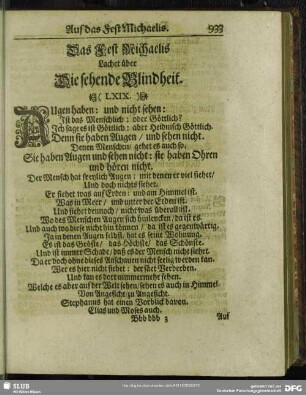 Auf das Fest Michaelis. 933
Das Fest Michaelis
Lachet über
Die sehende Blindheit.
( LXIX. )
AUgen haben: und nicht sehen:
Ist das Menschlich: oder Göttlich?
Ich sage es ist Göttlich: aber Heidnisch Göttlich.
Denn sie haben Augen / und sehen nicht.
Denen Menschen gehet es auch so.
Sie haben Augen und sehen nicht: sie haben Ohren
und hören nicht.
Der Mensch hat freylich Augen: mit denen er viel siehet/
Und doch nichts siehet.
Er siehet was auf Erden: und am Himmel ist.
Was in Meer / und unter der Erden ist.
Und siehet dennoch / nicht was überall ist.
Wo des Menschen Augen sich hinlencken / da ist es.
Und auch wo diese nicht hin können / da ist es gegenwärtig.
Ja in denen Augen selbst / hat es seine Wohnung.
Es ist das Gröste / das Höchste / das Schönste.
Und ist immer Schade / daß es der Mensch nicht siehet.
Da er doch ohne dieses Anschauen nicht seelig werden kan.
Wer es hier nicht siehet: der ist Verderben.
Und kan es dort nimmermehr sehen.
Welche es aber auf der Welt sehen / sehen es auch im Himmel
Von Angesicht zu Angesicht.
Stephanus hat einen Vorblick davon.
Elias und Moses auch.
Bbb bbb 3 Auf
SLUB
Wir führen Wissen.